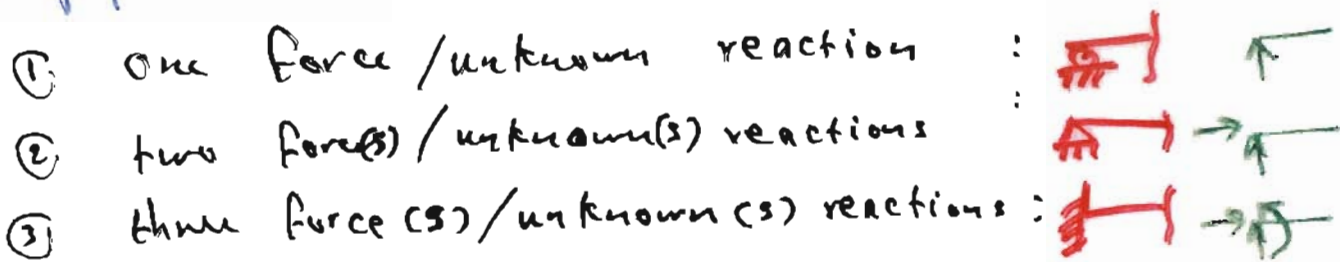 ① one force/unknown reaction :
② two force(s)/unknown(s) reactions :
③ three force(s)/unknown(s) reactions :